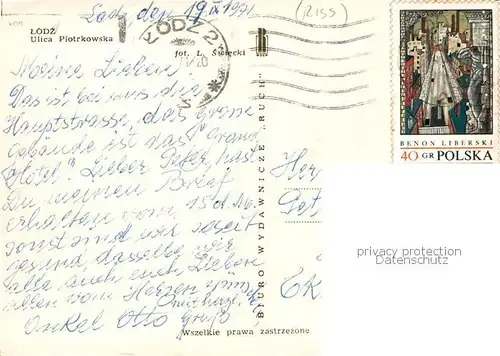 Łódź, den 19 IX 1971
(RISS)
ŁÓDŹ
Ulica Piotrkowska
fot. L. Święcki
ŁÓDŹ 2
BENON LIBERSKI
40 GR POLSKA
Meine Lieben!
Das ist bei uns die
Hauptstrasse, das Grosse
Gebäude ist das "Grand
Hotel". Lieber Peter, hast
Du meinen Brief
erhalten vom 15 d. M.
sonst sind wir soweit
gesund, dasselbe wir
alle auch euch Lieben
allen vom Herzen
Onkel Otto Grüße
BIURO WYDAWNICZE „RUCH"
Wszelkie prawa zastrzeżone
privacy protection
Datenschutz